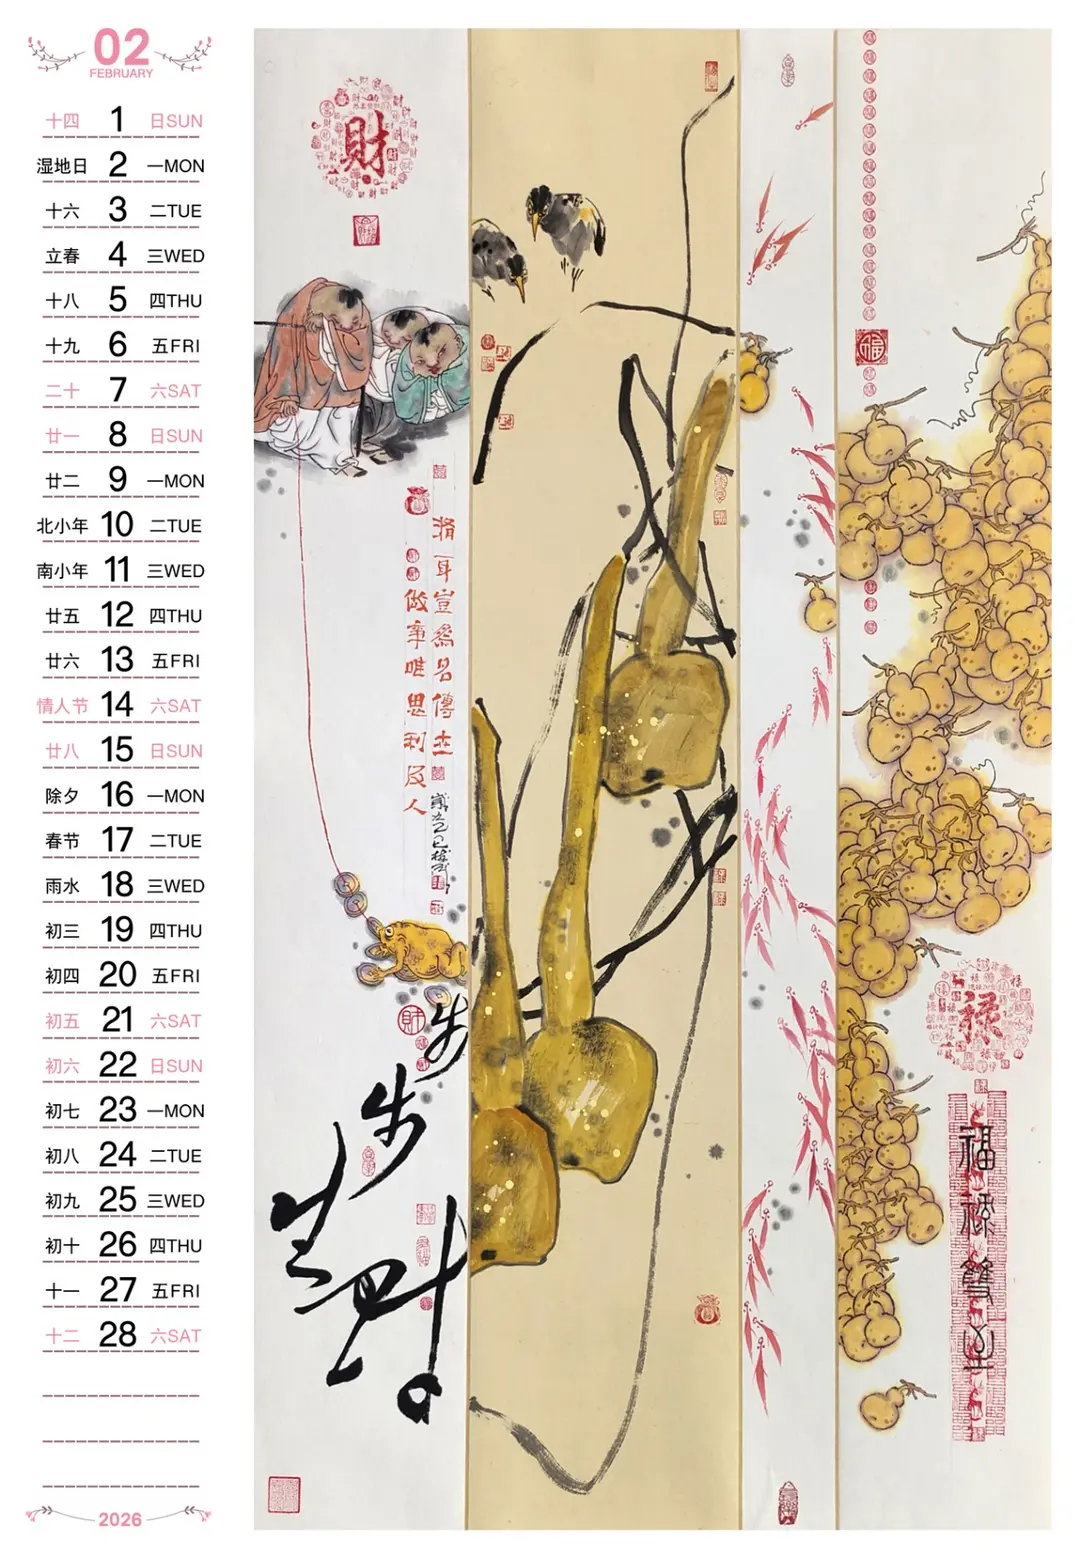 02
FEBRUARY
十四 1 日SUN
湿地日 2 一MON
十六 3 二TUE
立春 4 三WED
十八 5 四THU
十九 6 五FRI
二十 7 六SAT
廿一 8 日SUN
廿二 9 一MON
北小年 10 二TUE
南小年 11 三WED
廿五 12 四THU
廿六 13 五FRI
情人节 14 六SAT
廿八 15 日SUN
除夕 16 一MON
春节 17 二TUE
雨水 18 三WED
初三 19 四THU
初四 20 五FRI
初五 21 六SAT
初六 22 日SUN
初七 23 一MON
初八 24 二TUE
初九 25 三WED
初十 26 四THU
十一 27 五FRI
十二 28 六SAT
2026
財
豈為名傳世
做事唯思利及人
步步生財
財
福
禄
福祿雙